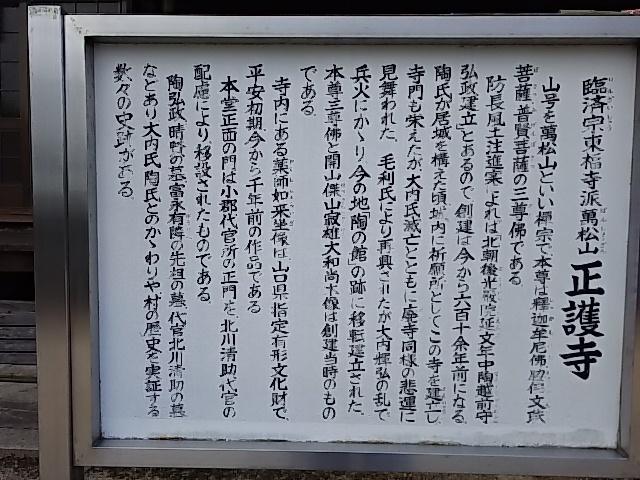 臨済宗東福寺派萬松山 正護寺
山号を萬松山といい禅宗で本尊は釋迦牟尼佛脇侍文殊
菩薩普賢菩薩の三尊佛である。
防長風土注進案によれば北朝後光厳院延文年中陶越前守
弘政建立」とあるので創建は今から六百十余年前になる
陶氏が居城を構えた頃城内に祈願所としてこの寺を建立し
寺門も栄えたが大内氏滅亡とともに廃寺同様の悲運に
見舞われた。毛利氏により再興されたが大内輝弘の乱で
兵火にかゝり、今の地「陶の館」の跡に移転建立された。
本尊三尊佛と開山傑山寂雄大和尚木像は創建当時のもの
である。
寺内にある薬師如来坐像は山口県指定有形文化財で、
平安初期、今から千年前の作品である
本堂正面の門は小郡代官所の正門を北川清助代官の
配慮により移設されたものである。
陶弘政晴賢の墓富永有隣の先祖の墓、代官北川清助の墓
などあり大内氏陶氏とのかゝわりや村の歴史を実証する
数々の史跡がある。